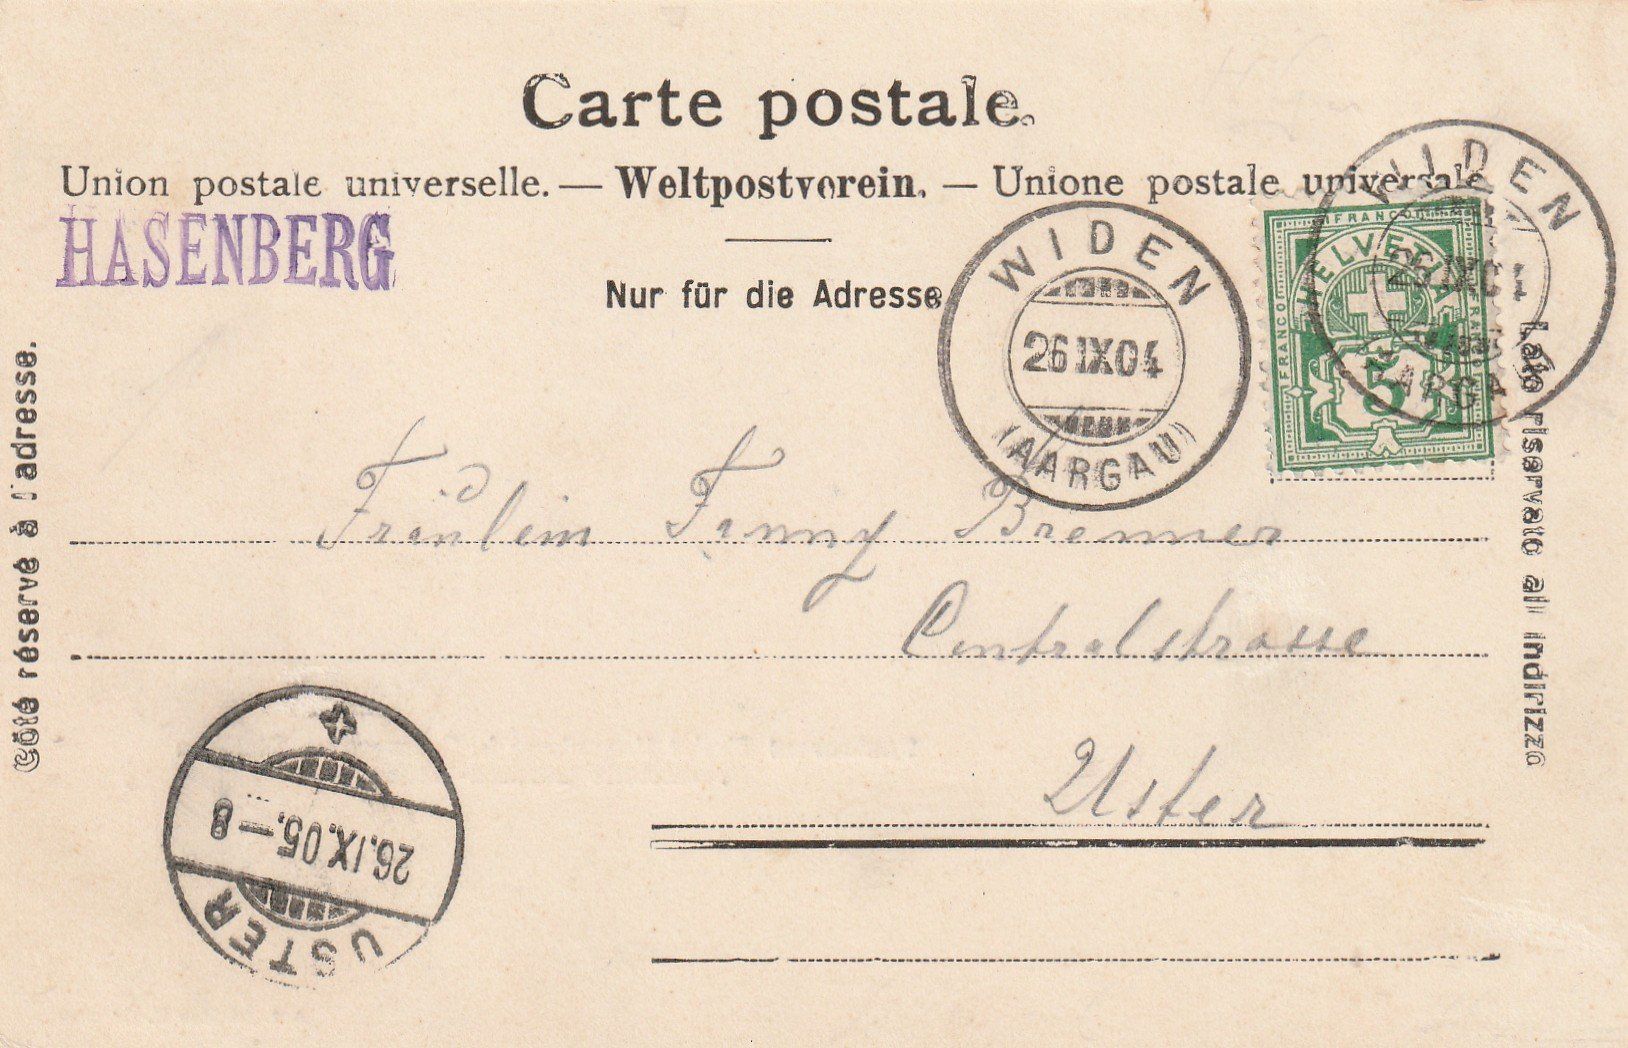 Carte postale.
Union postale universelle. — Weltpostverein. — Unione postale universale
HASENBERG
Nur für die Adresse
WIDEN
26 IX 04
(AARGAU)
WIDEN
26 IX 0
AARGA
FRANCO
HELVETIA
FRANCO
FRANCO
5
Côté réservé à l'adresse.
Lato riservato all indirizzo
Fräulein Fanny Brenner
Centralstrasse
Uster
26.IX.05.–8
USTER